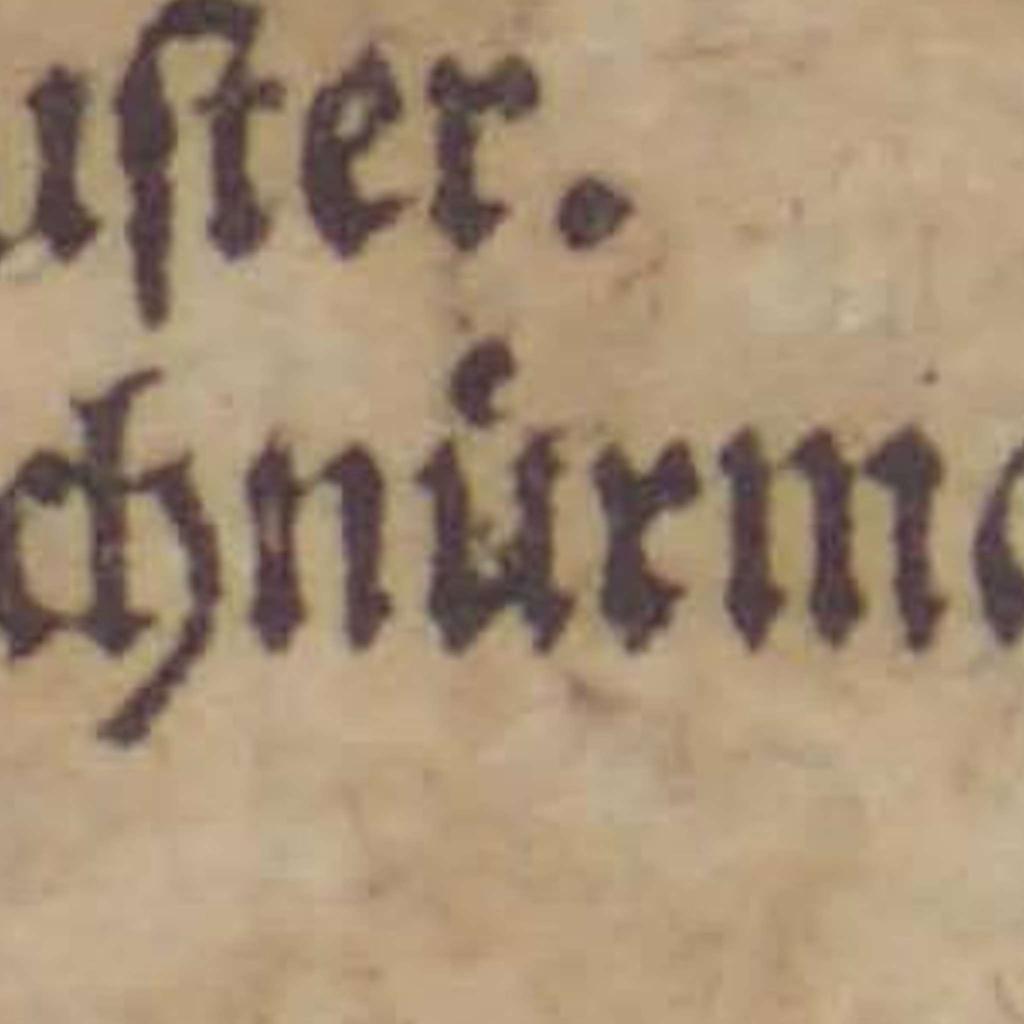 uſter.
chnuͤrme